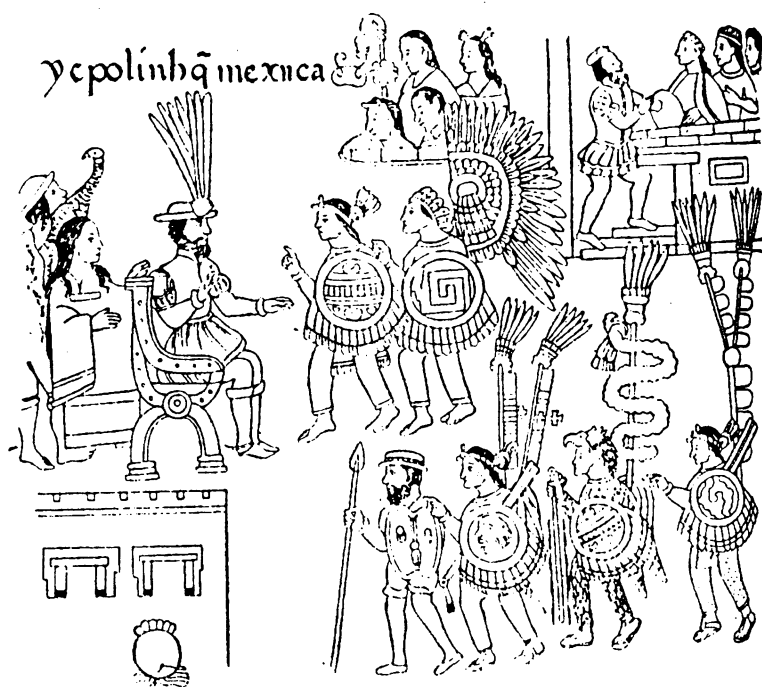 ycpolínhq̃ mexnca